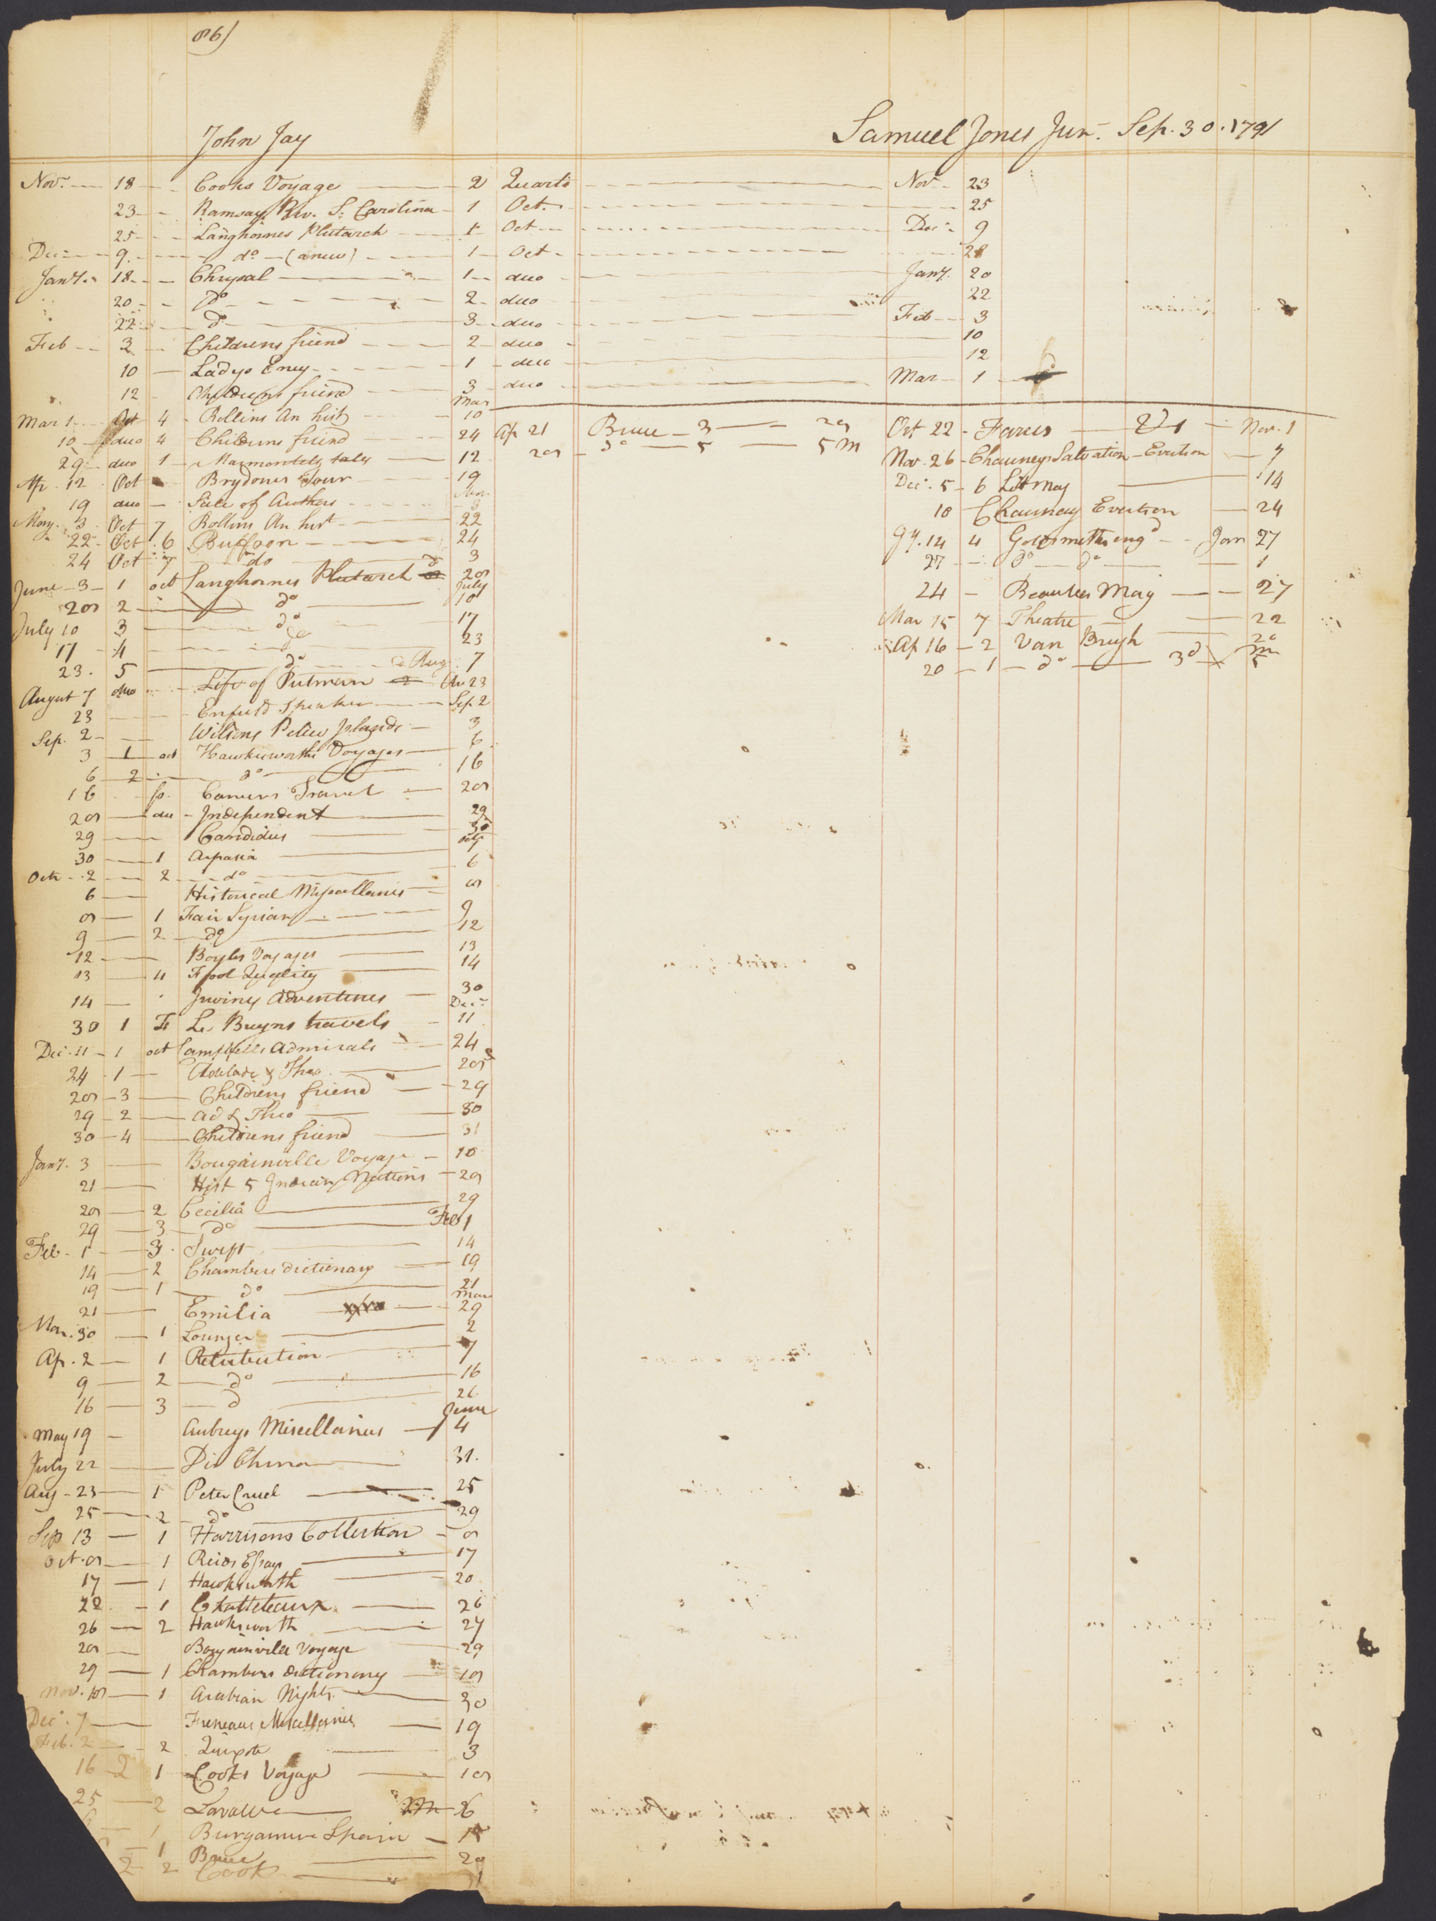 86)
John Jay
Samuel Jones Junr. Sep. 30. 1791
Novr. 18 Cooks Voyage 2 Quarto Novr. 23
23 Ramsay Rev. S. Carolina 1 Oct. 25
25 Langhornes Plutarch 1 Oct Decr 9
Decr 9 do (anew) 1 Oct 28
Jany. 18 Chrysal 1 duo Jany. 20
20 do 2 duo 22
22 do 3 duo Feb 3
Feb 3 Childrens friend 2 duo 10
10 Ladys Ency 1 duo 12
12 Childrens friend 3 duo Mar 1
Mar
Mar 1 Oct 4 Rollins An hist 10
10 duo 4 Childrens friend 24 Ap 21 Bruce 3 28
29 duo 1 Marmontels tales 12 28 do 5 5 M
Ap. 12 Oct Brydones Tour 19
19 duo Fate of Authors
May. 3 Oct 7 Rollins An hist 22
22 Oct 6 Buffoon 24
24 Oct 7 do 3
June 3 1 oct Langhornes Plutarch 28
July
28 2 do 10
July 10 3 do 17
17 4 do 23
23. 5 do Aug. 7
August 7 duo Life of Putmern 23
23 Enfield Speaker Sep. 2
Sep. 2 Wilsons Pelew Islands 3
3 1 oct Hawkesworths Voyages 6
6 2 do 16
16 fo. Carvers Travel 28
28 duo Independent 29
29 Candidus 30
30 1 Aspasia
Octr 2 2 do 6
6 Historical Miscellanies 8
8 1 Fair Syrian 9
9 2 do 12
12 Boyles Voyages 13
13 4 Fool Quality 14
14 Irwins Adventures 30
Decr
30 1 F Le Bruyns travels 11
Decr. 11 1 oct Campbells Admirals 24
24 1 Adelade & Theo 28
28 3 Childrens friend 29
29 2 Ad & Theo 30
30 4 Childrens friend 31
Jany. 3 Bougainville Voyage 10
21 Hist 5 Indian Nations 28
28 2 Cecilia 29
29 3 do Feb 1
Feb. 1 3 Swift 14
14 2 Chambers dictionary 19
19 1 do 21
Mar
21 Emilia 29
Mar. 30 1 Lounger 2
Ap. 2 1 Retribution 7
9 2 do 16
16 3 do 26
June
May 19 Aubreys Miscellanies 4
July 22 Dis China 31.
Aug 23 1 Peter Cruel 25
25 2 do 29
Sep 13 1 Harrisons Collection 8
Oct. 8 1 Reids Essays 17
17 1 Hawksworth 20
22 1 Chatteleaux 26
26 2 Hawksworth 27
28 Bogainville Voyage 29
29 1 Chambers dictionary 18
Nov. 18 1 Arabian Nights 30
Decr. 7 Freneaus Miscellanies 19
Feb. 2 2 Quixote 3
16 2 1 Cooks Voyage 18
25 2 Lavater 26
1 Burgamire Spain 15
1 Bruce 28
2 2 Cook
Oct 22 Fares 2d 1 Nov. 1
Nov. 26 Chauncys Salvation Evertson 7
Decr. 5 6 Lit Mag 14
18 Chauncy Evertson 24
Jy. 14 4 Goldsmiths engd Jan 27
27 do do 1
24 Beauties Mag 27
Mar 15 7 Theatre 22
Ap 16 2 Van Brugh 20
20 1 do 3d M 5